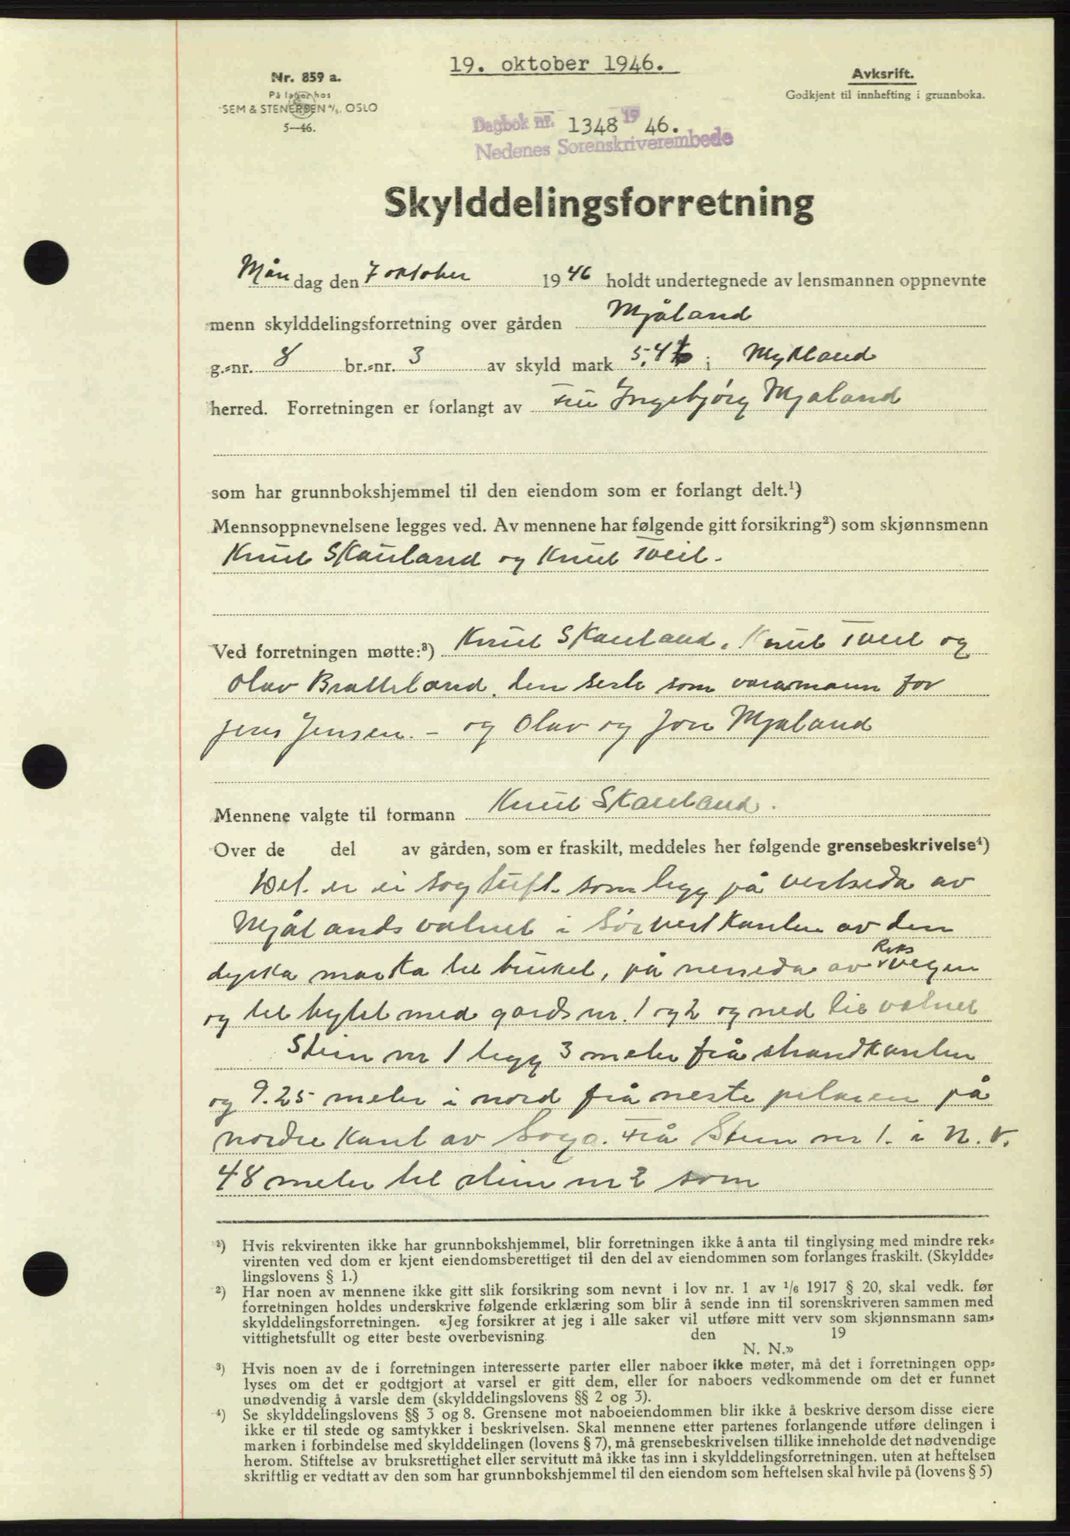 19. oktober 1946.
Nr. 859 a.
På lager hos
SEM & STENERSEN A/S. OSLO
5—46.
Avksrift.
Godkjent til innhefting i grunnboka.
Dagbok nr. 1348 19 46.
Nedenes Sorenskriverembede
Skylddelingsforretning
Mån dag den 7 oktober 1946 holdt undertegnede av lensmannen oppnevnte
menn skylddelingsforretning over gården Mjåland
g.-nr. 8 br.-nr. 3 av skyld mark 5.4 i Mykland
herred. Forretningen er forlangt av Fru Ingebjørg Mjaland
som har grunnbokshjemmel til den eiendom som er forlangt delt.¹)
Mennsoppnevnelsene legges ved. Av mennene har følgende gitt forsikring²) som skjønnsmenn
Knut Skauland og Knut Tveit.
Ved forretningen møtte:³) Knut Skauland, Knut Tveit og
Olav Bratteland, den siste som varamann for
Jens Jensen. – og Olav og Jon Mjaland
Mennene valgte til formann Knut Skauland.
Over de del av gården, som er fraskilt, meddeles her følgende grensebeskrivelse⁴)
Det er ei sagtuft som ligg på vestsida av
Mjålandsvatnet i Sørvestkanten av den
dyrka marka til bruket, på nersida av Riksvegen
og til bytet med gards nr. 1 og 2 og ned til vatnet
Stein nr 1 ligg 3 meter frå strandkanten
og 9.25 meter i nord frå neste pelaren på
nordre kant av Saga. Frå Stein nr 1. i N. V.
48 meter til stein nr 2 som
¹) Hvis rekvirenten ikke har grunnbokshjemmel, blir forretningen ikke å anta til tinglysing med mindre rek-
virenten ved dom er kjent eiendomsberettiget til den del av eiendommen som forlanges fraskilt. (Skyldde-
lingslovens § 1.)
²) Har noen av mennene ikke gitt slik forsikring som nevnt i lov nr. 1 av 1/6 1917 § 20, skal vedk. før
forretningen holdes underskrive følgende erklæring som blir å sende inn til sorenskriveren sammen med
skylddelingsforretningen. «Jeg forsikrer at jeg i alle saker vil utføre mitt verv som skjønnsmann sam-
vittighetsfullt og etter beste overbevisning den 19
N. N.»
³) Hvis noen av de i forretningen interesserte parter eller naboer ikke møter, må det i forretningen opp-
lyses om det er godtgjort at varsel er gitt dem, eller for naboers vedkommende om det er funnet
unødvendig å varsle dem (skylddelingslovens §§ 2 og 3).
⁴) Se skylddelingslovens §§ 3 og 8. Grensene mot naboeiendommen blir ikke å beskrive dersom disse eiere
ikke er til stede og samtykker i beskrivelsen. Skal mennene etter partenes forlangende utføre delingen i
marken i forbindelse med skylddelingen (lovens § 7), må grensebeskrivelsen tillike inneholde det nødvendige
herom. Stiftelse av bruksrettighet eller servitutt må ikke tas inn i skylddelingsforretningen. uten at heftelsen
skriftlig er vedtatt av den som har grunnbokshjemmel til den eiendom som heftelsen skal hvile på (lovens § 5)